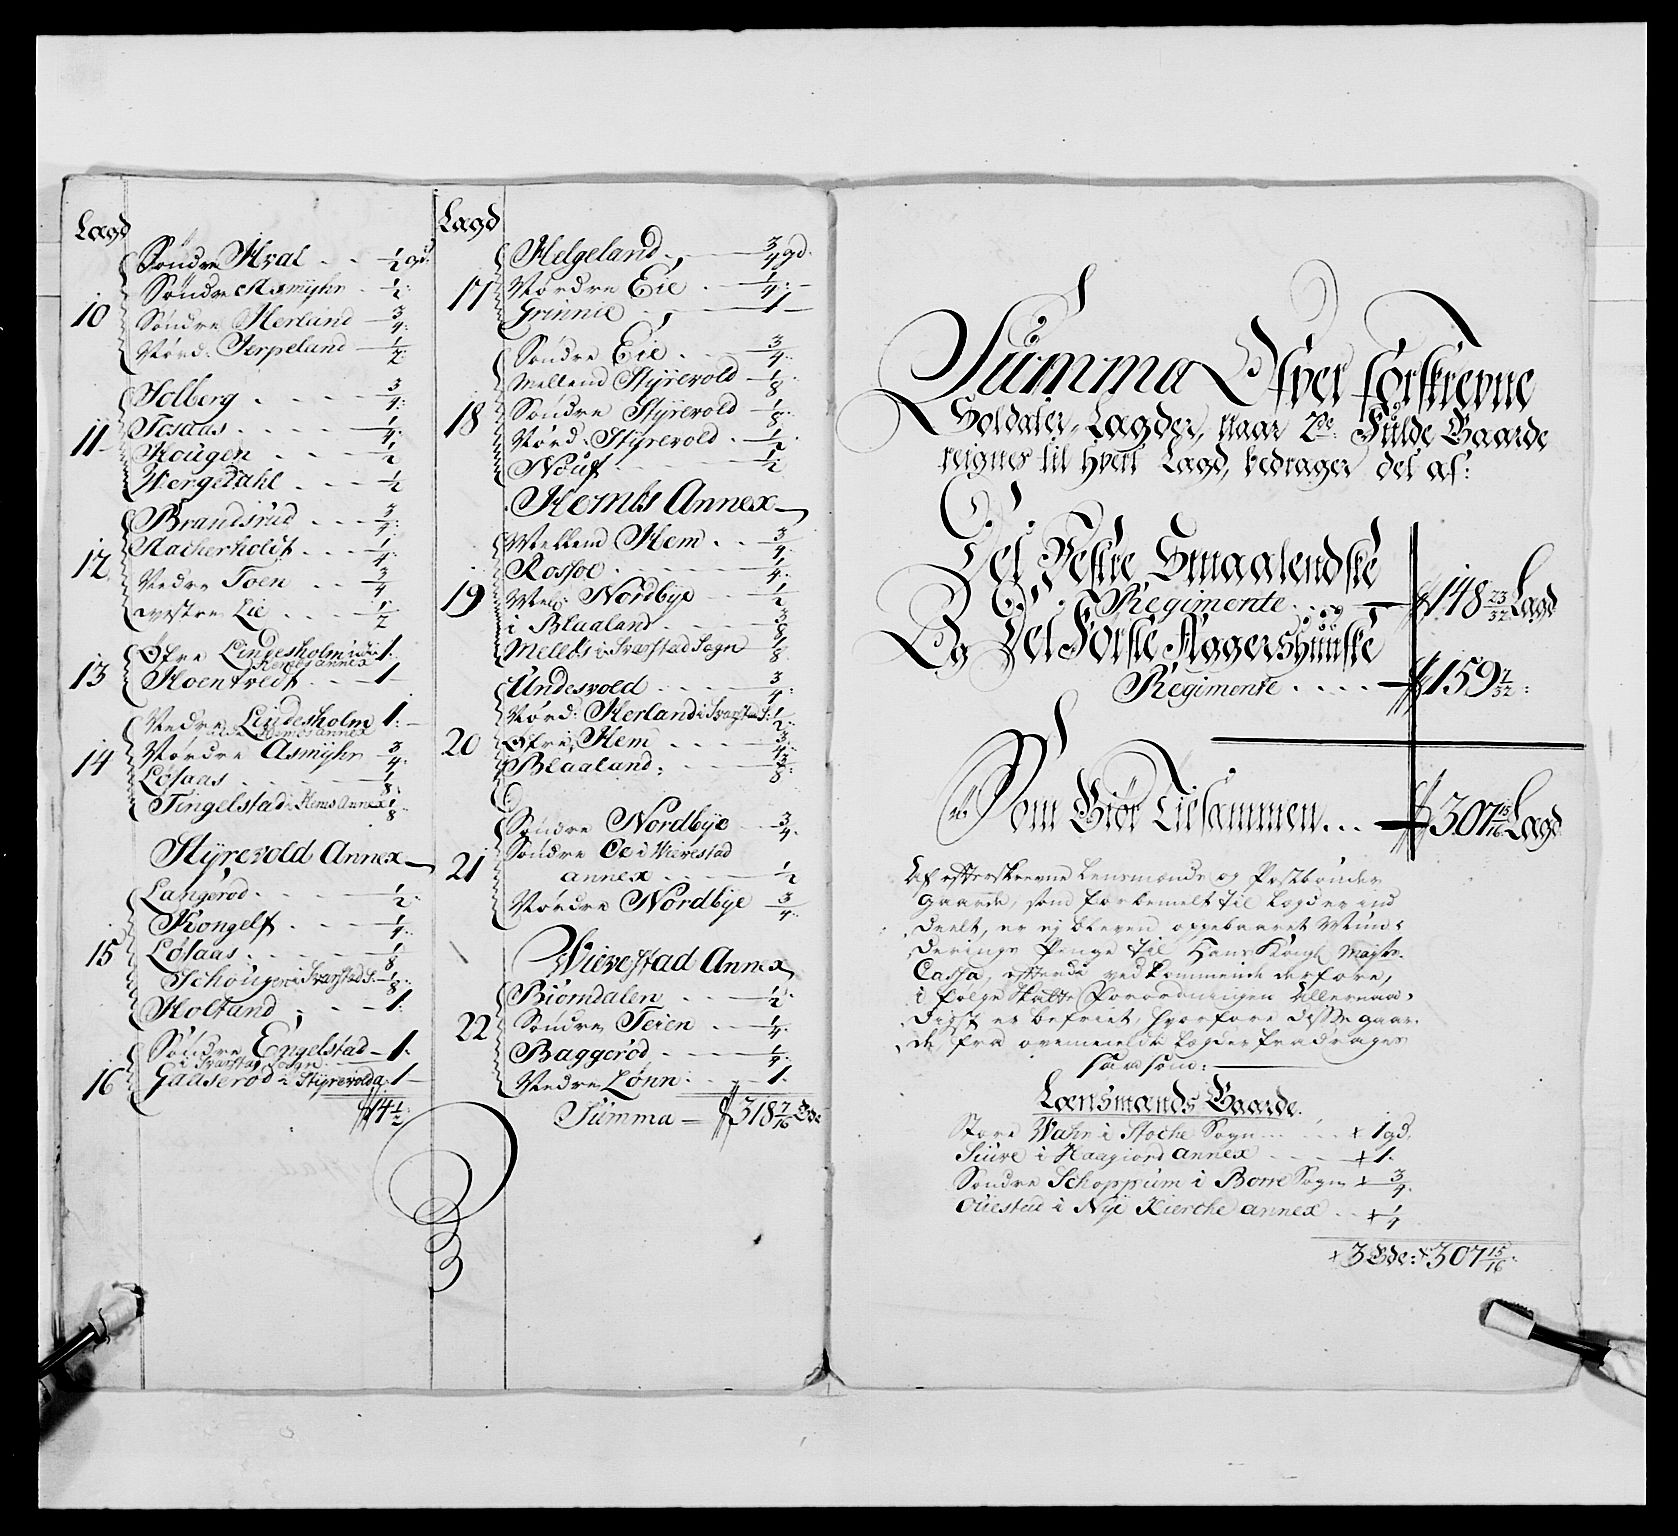 Lægd
Søndre Hval . . — 1/2 gd:
Søndre Asmijhn . 1/2:
10 Søndre Herland — 3/4:
Nörd: Jerpeland — 1/2:
Solberg . . . . 3/4:
11 Tosaas . . . 1/4:
Hougen . . . 1/2
Wergedahl . . . 1/2
Brandsrud . . . 3/4:
12 Aackerholdt . . . 1/4
Nedre Toen . . 3/4
westre Lie . . . 1/2
Øfre Lindesholm idit 1.
Hembs annex
13 Hoentvedt . . . 1
Nedre Lindesholm 1:
Hembs annex
14 Nördre Asmijhn — 3/4:
Løsaas . . . 1/8:
Tingelstad i Hems Annex 1/8
Styrevold Annex
Langerød . . . 1/2:
Kongelf . . . 1/4:
15 Løsaas . . . 1/8
Schougen i Svarstad S. 1/8:
Holtand . . . 1.
Søndre Engelstad — 1.
i Svarstad Sogn
16 Gaaserød i Styrevold a: 1
14 1/2:
Lægd
Helgeland . . 3/4 gd.
17 Nördre Eie . . 1/4:
Grinnie . . 1
Søndre Eie . . 3/4:
Mellem Styrevold — 1/8
18 Søndre Styrevold — 1/8:
Nörd: Styrevold . 1/2:
Nöuf . . . 1/2
Hembs Annex
Mellem Hem . . 3/4:
Rossoe . . . 1/4:
19 Mel: Nordbye . . 1/2
i Blaaland . . . 3/8
Melebs i Svarstad Sogn 1/8
Undesvold . . . 3/4:
Nörd: Herland i Svarstad S: 1/2:
20 Øfre Hem . . . 3/4:
Blaaland . . . 3/8:
Søndre Nordbye . . 3/4.
21 Søndre Oe i Wievestad
annex . . . 1/2
Nördre Nordbye — 3/4:
Wievestad Annex
Biömdalen . . . 1/2:
22 Søndre Teien . . 1/4:
Baggerød . . . 1/4:
Nedre Lønn . . . 1.
Summa — 318 7/16 Gde
Summa Ofver forskrevne
Soldater, Lægder, naar 2de: Fulde Gaarde
reignes til hvert Lægd, bedrager det af:
Det Vestre Smaalendske
Regimente . . . — 148 23/32 Lægd
Og Det Norske Aggershuuske
Regimente . . . . — 159 7/32:
Som Giör Tilsammen . . . — 307 15/16 Lægd
Af efterskrevne Lensmænds og Postbönder
Gaarde, som forbemelt til Lægder ind
deelt, er ej bleven oppebaaret Mun-
derings Penge til Hans Kongl Majts:
Cassa, efterdi vedkommende derfore,
i følge Skatte Forordningen Allernaa-
digst er befriet, hvorfore disse gaar-
de fra ovenmeldte Lægder fradrages
saasom:
Lænsmænds Gaarde.
Store Wahn i Stoche Sogn . . . 1 gd.
Siüve i Haagiord annex . . . 1.
Søndre Schoppum i Borre Sogn . 3/4.
Ollestad i Nye Kierche annex . . 1/4
3 Gde: 307 15/16: